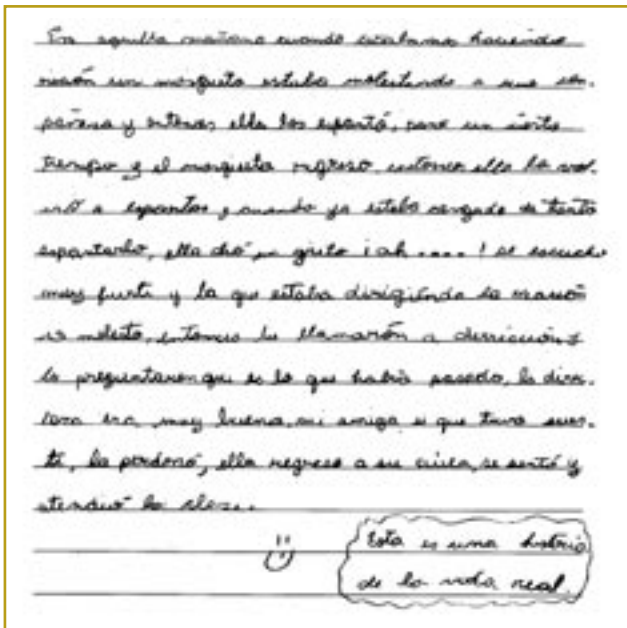 En aquella mañana cuando estabamos haciendo
oración un mosquito estaba molestando a una com-
pañera y entonces ella los espantó, paso un cierto
tiempo y el mosquito regreso entonces ella lo vol-
vió a espantar, cuando ya estaba cansada de tanto
espantarlo, ella dió un grito ¡ah ....! se escucho
muy fuerte y la que estaba dirigiendo la oración
se molesto, entonces la llamarón a dirección y
le preguntaron que es lo que había pasado, la direc-
tora era muy buena, mi amiga si que tuvo suer-
te, la perdonó, ella regreso a su aula, se sentó y
atendió la clase..
Esta es una historia
de la vida real.